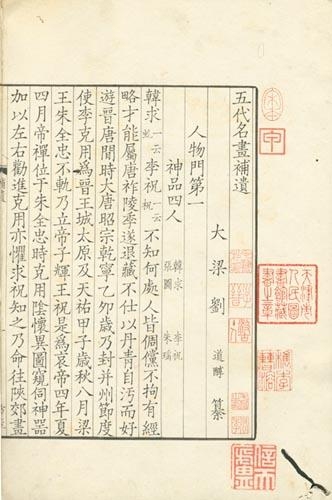 五代名畫補遺
大梁劉 道醇 纂
人物門第一
神品四人 韓求 李祝 張圖 朱瑀
韓求一云虬李祝一云不知何處人皆倜儻不拘有經
略才能屬唐祚陵季遂退藏不仕以丹青自汚而好
遊晉唐間時大唐昭宗乾寧乙卯歲乃封并州節度
使李克用爲晉王城太原及天祐甲子歲秋八月梁
王朱全忠不軌乃立帝子輝王祝是爲哀帝四年夏
四月帝禪位于朱全忠時克用陰懷異圖窺伺神器
加以左右勸進克用亦懼求祝知之乃命往陝郊畫
宋本
甲
天津市人民圖書館藏書之章